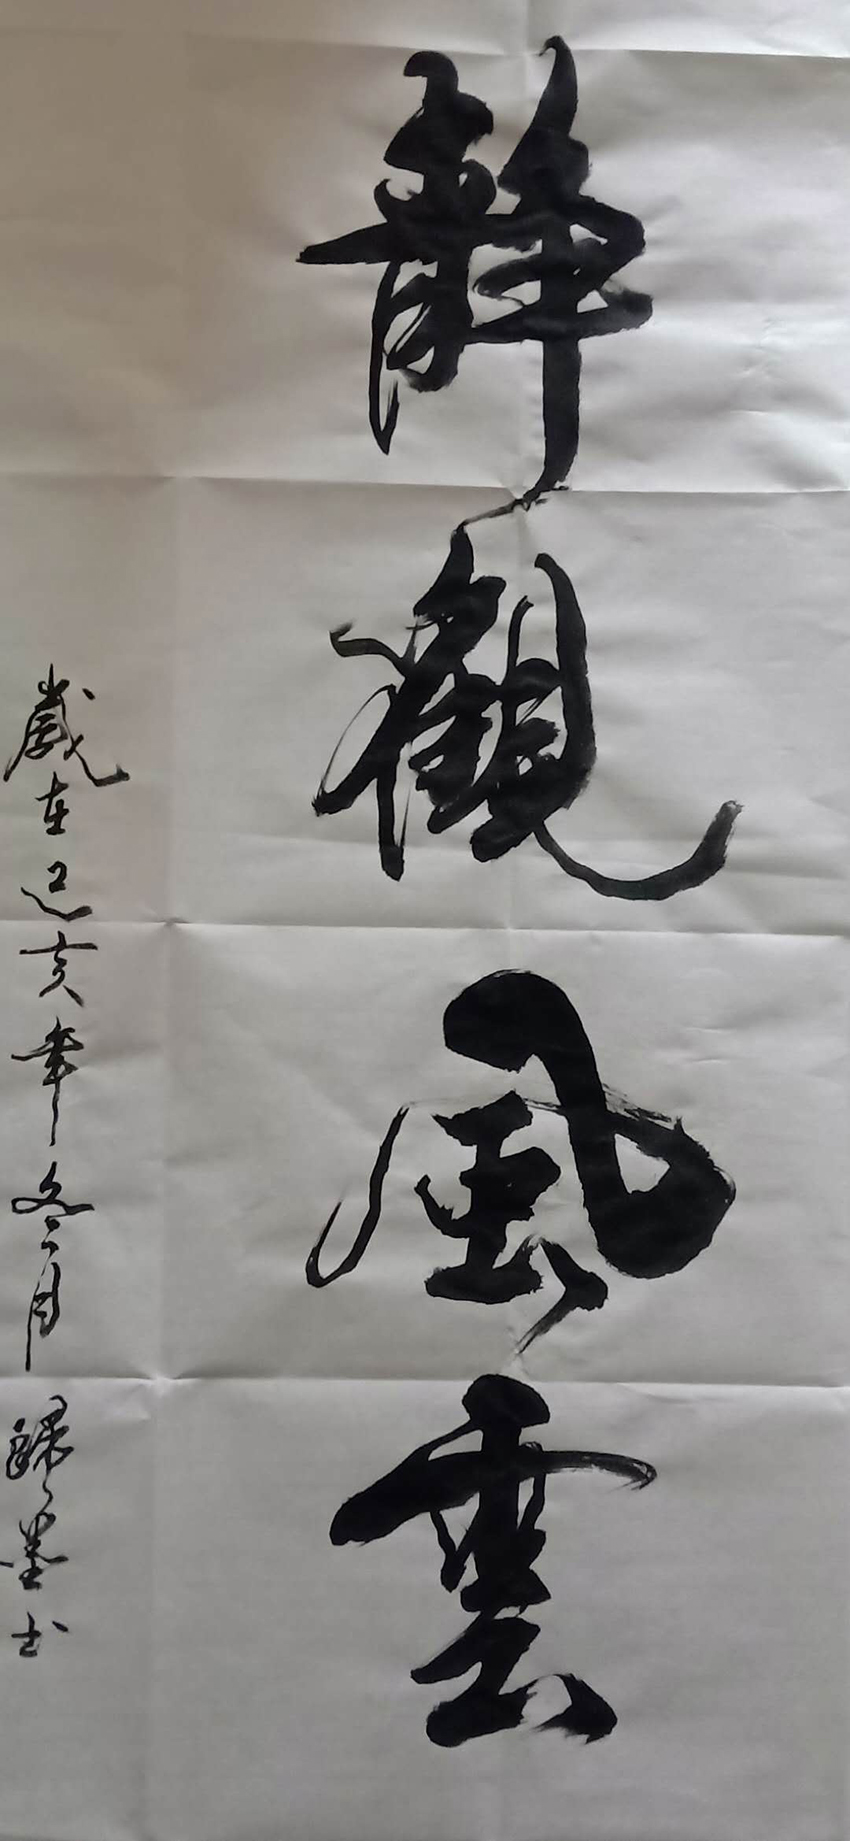 靜觀風雲
歲在己亥年冬月歸墨书